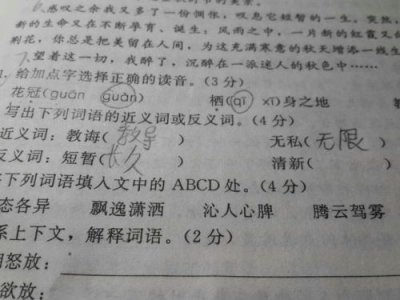 感叹之余我又多了一份惆怅,叹息它短暂的一生。突然,
新的生命又在不断孕育、诞生;风雨之中,一片新的红霞又
荆花,你总是把美留在人间,为这充满寒意的秋天增添一线生
望着这一切,我醉了,沉醉在一派迷人的秋色中……
给加点字选择正确的读音。(3 分)
花冠(guān guàn) 栖(qī xī)身之地
写出下列词语的近义词或反义词。(4 分)
近义词:教诲(教导) 无私(无限)
反义词:短暂(长久) 清新( )
下列词语填入文中的 ABCD 处。(4 分)
态各异 飘逸潇洒 沁人心脾 腾云驾雾
系上下文,解释词语。(2 分)
怒放:
欲放: